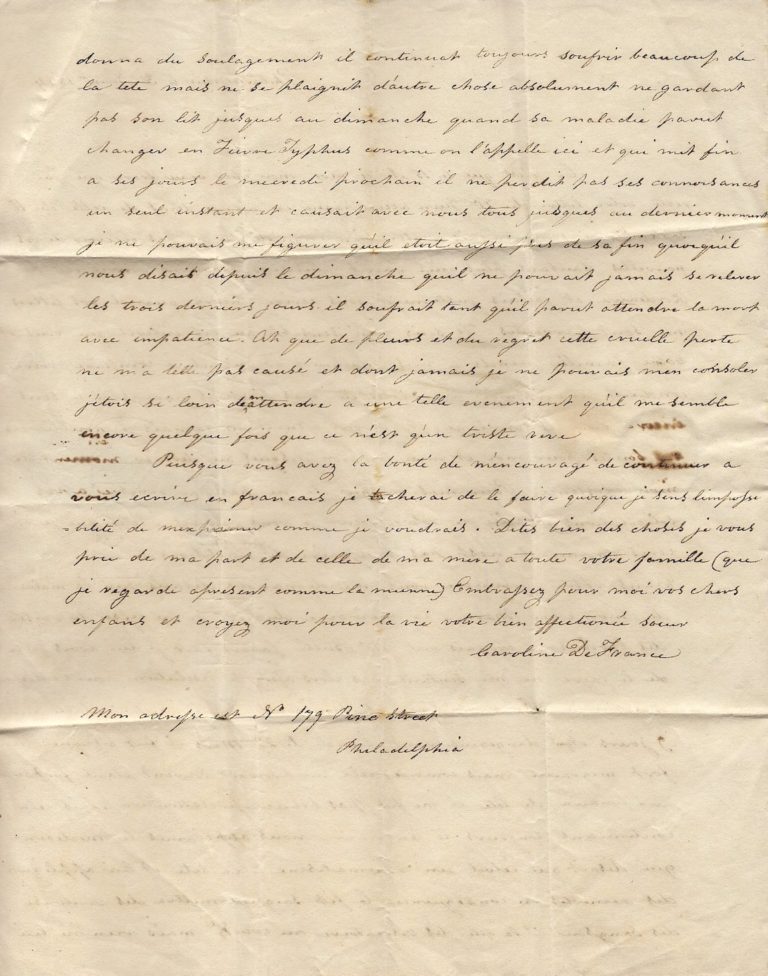 donna du soulagement il continuat toujours soufrir beaucoup de
la tete mais ne se plaignit d'autre chose absolument ne gardant
pas son lit jusques au dimanche quand sa maladie parut
changer en Fievre Typhus comme on l'appelle ici et qui mit fin
a ses jours le mecredi prochain il ne perdit pas ses connoisances
un seul instant et causait avec nous tous jusques au dernier moment
je ne pouvais me figurer qu'il etoit aussi près de sa fin quoiqu'il
nous disait depuis le dimanche qu'il ne pouvait jamais se relever
les trois derniers jours il soufrait tant qu'il parut attendre la mort
avec impatience. Ah que de pleurs et du regret cette cruelle perte
ne m'a telle pas causé et dont jamais je ne pouvais m'en consoler
j'etois si loin de m'attendre a une telle evenement qu'il me semble
encore quelque fois que ce n'est qu'un triste reve
Puisque vous avez la bonté de m'encouragé de continuer a
vous ecrire en francais je tacherai de le faire quoique je sens l'imposse
=bilité de m'exprimer comme je voudrais. Dites bien des choses je vous
prie de ma part et de celle de ma mère a toute votre famille (que
je regarde apresent comme la mienne) Embrassez pour moi vos chers
enfans et croyez moi pour la vie votre bien affectionée sœur
Caroline De France
Mon adresse est No 179 Pine Street
Philadelphia